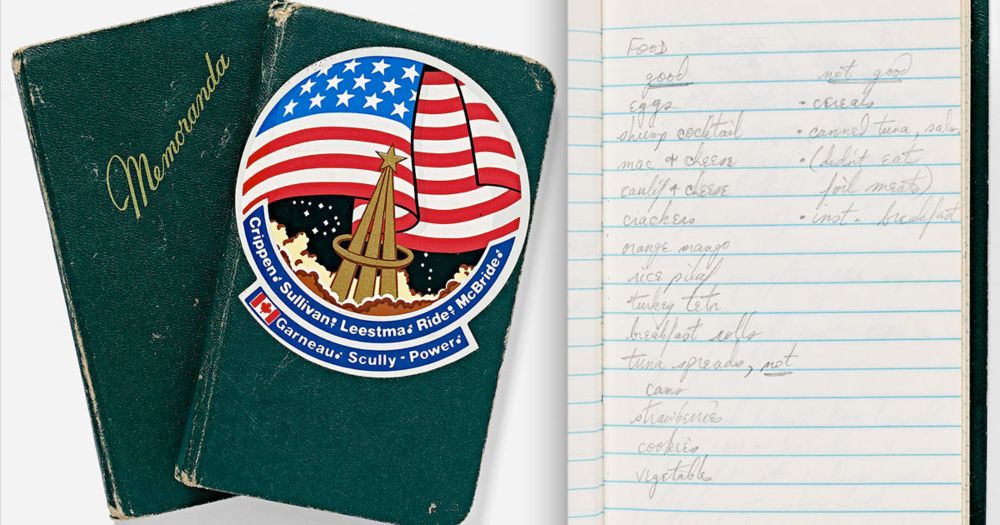 Memoranda
Crippen Sullivan Leestma Ride McBride
Garneau Scully-Power
FOOD
good not good
eggs • cereals
shrimp cocktail • canned tuna, salm
mac & cheese • (didn't eat
caulif & cheese foil meats)
crackers • inst. breakfast
orange mango
rice pilaf
turkey tetr
breakfast rolls
tuna spreads, not
cans
strawberries
cookies
vegetables